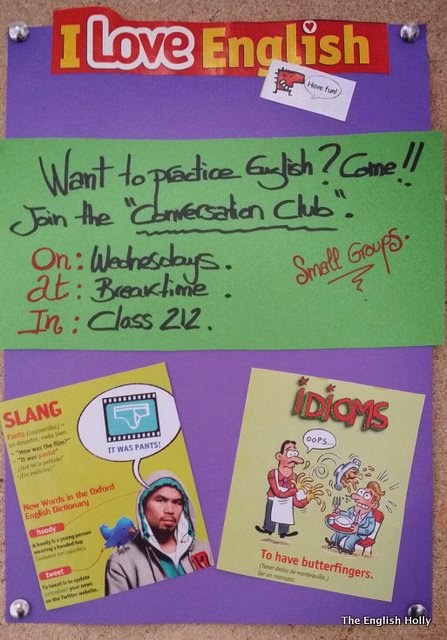 I Love English
Have fun!
Want to practice English? Come!!
Join the "Conversation Club".
On: Wednesdays.
At: Breaktime.
In: Class 212.
Small Groups.
SLANG
Pants (calzoncillos) -
un desastre, nada bien.
- "How was the film?"
- "It was pants!"
¿Qué tal la película?
¡Era malísima!
IT WAS PANTS!
New Words in the Oxford
English Dictionary
hoody
A hoody is a young person
wearing a hooded top
tweet
To tweet is to update
your news
on the Twitter website.
iDiOMS
OOPS...
To have butterfingers.
(Tener dedos de mantequilla.)
Ser un manazas.
The English Holly